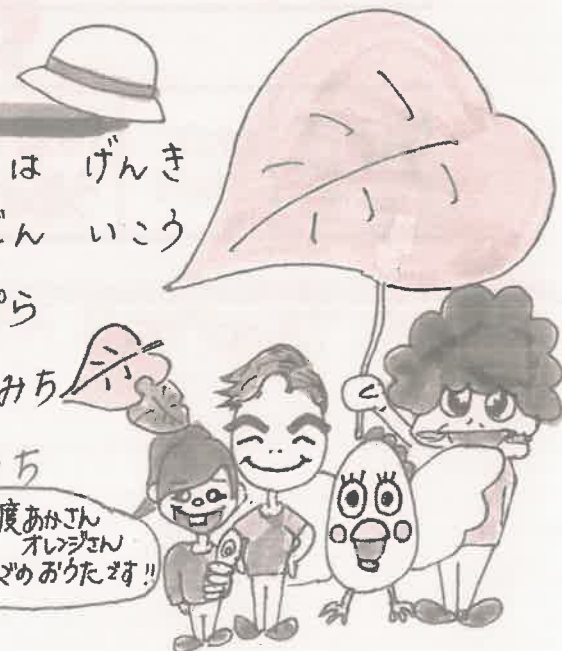 は げんき
どん いこう
ぱら
みち
ち
度あかさん
オレンジさん
でのおうたです!!